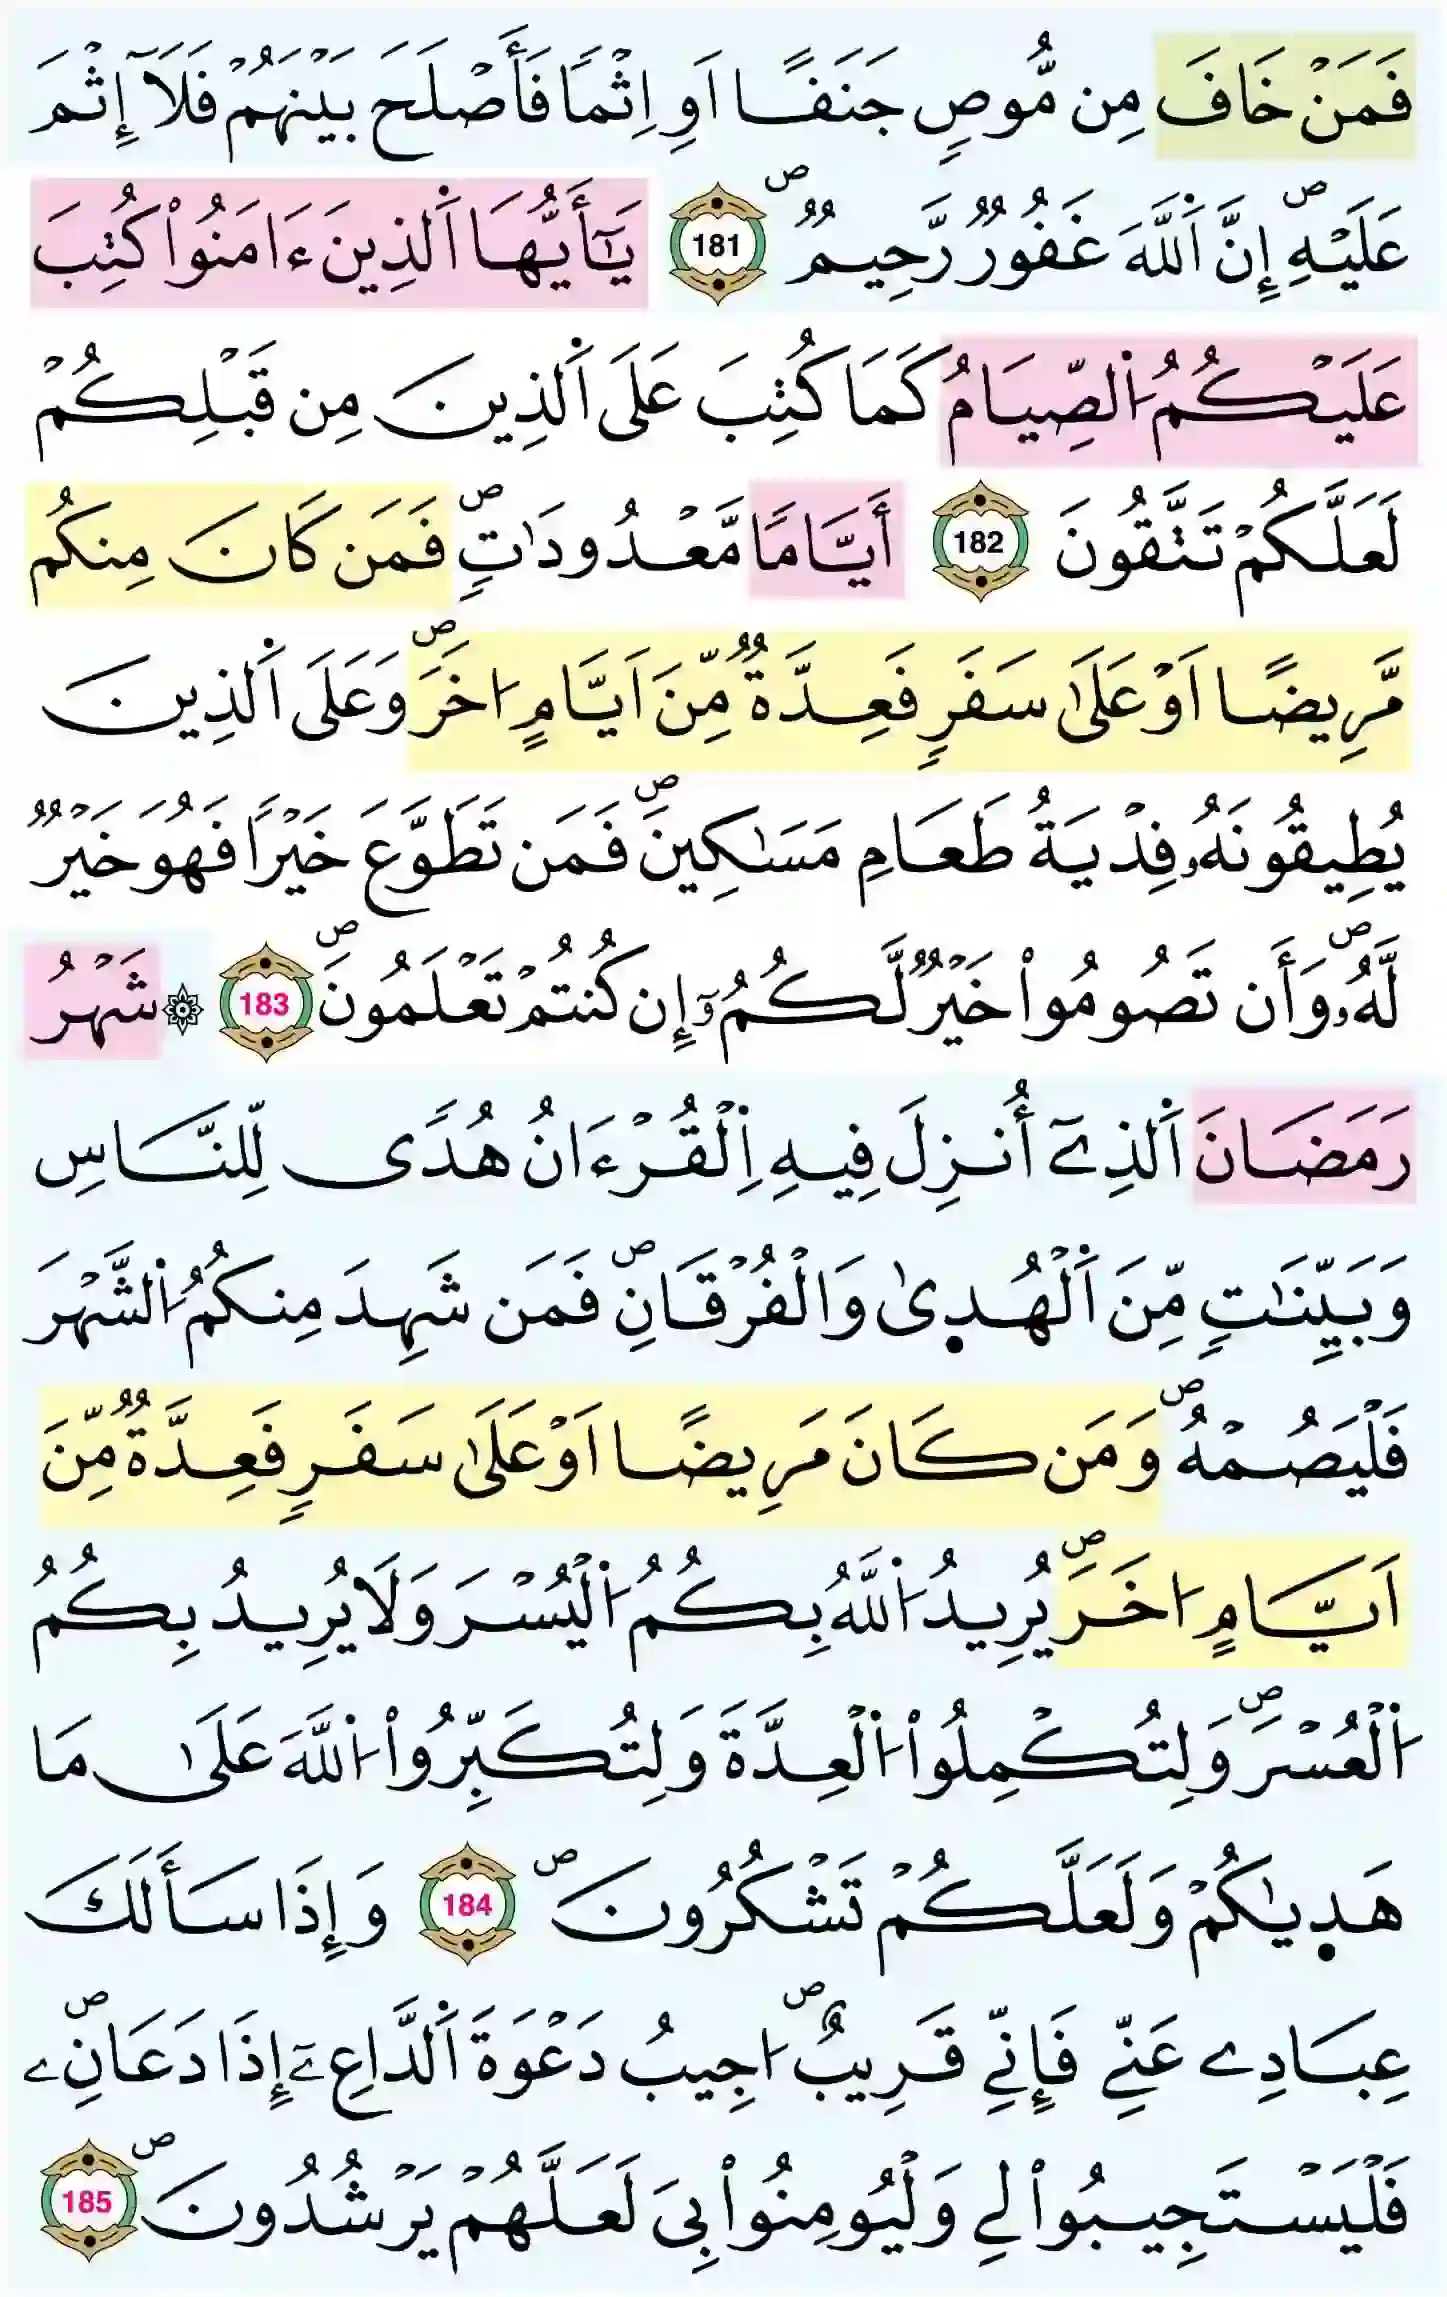 فَمَنْ خَافَ مِن مُّوصٖ جَنَفاً اَوِ اِثْماً فَأَصْلَحَ بَيْنَهُمْ فَلَآ إِثْمَ
عَلَيْهِۖ إِنَّ اَ۬للَّهَ غَفُورٞ رَّحِيمٞۖ 181 يَٰٓأَيُّهَا اَ۬لذِينَ ءَامَنُواْ كُتِبَ
عَلَيْكُمُ اُ۬لصِّيَامُ كَمَا كُتِبَ عَلَي اَ۬لذِينَ مِن قَبْلِكُمْ
لَعَلَّكُمْ تَتَّقُونَ 182 أَيَّاماٗ مَّعْدُودَٰتٖۖ فَمَن كَانَ مِنكُم
مَّرِيضاً اَوْ عَلَىٰ سَفَرٖ فَعِدَّةٞ مِّنَ اَيَّامٍ اُخَرَۖ وَعَلَي اَ۬لذِينَ
يُطِيقُونَهُۥ فِدْيَةُ طَعَامِ مَسَٰكِينَۖ فَمَن تَطَوَّعَ خَيْراٗ فَهُوَ خَيْرٞ
لَّهُۥۖ وَأَن تَصُومُواْ خَيْرٞ لَّكُمُۥٓ إِن كُنتُمْ تَعْلَمُونَۖ 183 ۞ شَهْرُ
رَمَضَانَ اَ۬لذِےٓ أُنزِلَ فِيهِ اِ۬لْقُرْءَانُ هُديٗ لِّلنَّاسِ
وَبَيِّنَٰتٖ مِّنَ اَ۬لْهُد۪ىٰ وَالْفُرْقَانِۖ فَمَن شَهِدَ مِنكُمُ اُ۬لشَّهْرَ
فَلْيَصُمْهُۖ وَمَن كَانَ مَرِيضاً اَوْ عَلَىٰ سَفَرٖ فَعِدَّةٞ مِّنَ
اَيَّامٍ اُخَرَۖ يُرِيدُ اُ۬للَّهُ بِكُمُ اُ۬لْيُسْرَ وَلَا يُرِيدُ بِكُمُ
اُ۬لْعُسْرَۖ وَلِتُكْمِلُواْ اُ۬لْعِدَّةَ وَلِتُكَبِّرُواْ اُ۬للَّهَ عَلَىٰ مَا
هَد۪يٰكُمْ وَلَعَلَّكُمْ تَشْكُرُونَۖ 184 وَإِذَا سَأَلَكَ
عِبَادِے عَنِّے فَإِنِّے قَرِيبٌۖ اُجِيبُ دَعْوَةَ اَ۬لدَّاعِۦٓ إِذَا دَعَانِۦۖ
فَلْيَسْتَجِيبُواْ لِے وَلْيُومِنُواْ بِي لَعَلَّهُمْ يَرْشُدُونَۖ 185